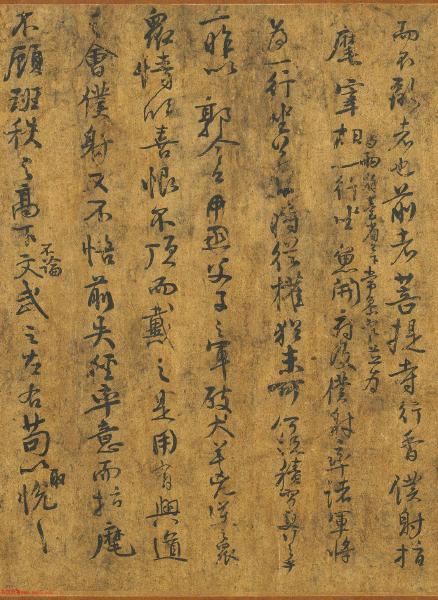 而不敬者也前者菩提寺行香僕射指
麾宰相与兩省臺省已下常參官並为一行坐魚開府及僕射率諸軍將
为一行坐若一時從權猶未可何況積習更行
一昨以郭令公父子之軍破犬羊兇逆衆
眾情欣喜恨不頂而戴之是用有興道
之會僕射又不悟前失徑率意而指麾
不顧班秩之高下不論文武之左右苟以取悅